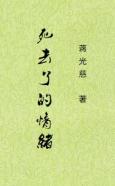 蒋光慈 著
死去了的情緒